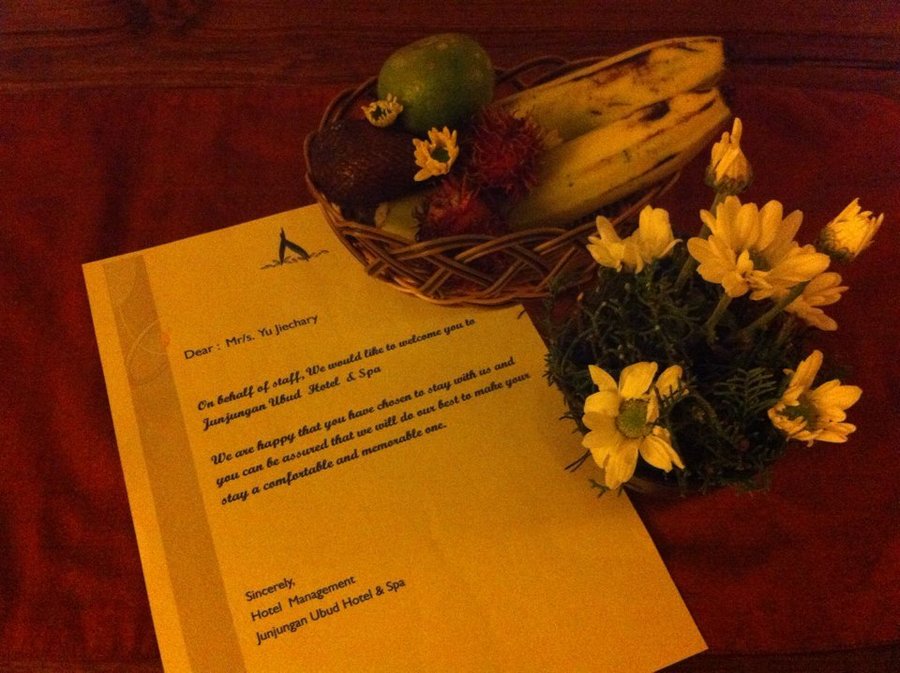 Dear : Mr/s. Yu Jiechary
On behalf of staff, We would like to welcome you to
Junjungan Ubud Hotel & Spa
We are happy that you have chosen to stay with us and
you can be assured that we will do our best to make your
stay a comfortable and memorable one.
Sincerely,
Hotel Management
Junjungan Ubud Hotel & Spa